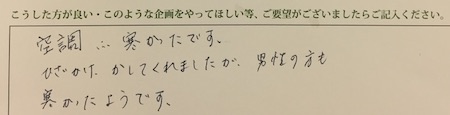 こうした方が良い・このような企画をやってほしい等、ご要望がございましたらご記入ください。
空調∴寒かったです。
ひざかけ かしてくれましたが、男性の方も
寒かったようです、